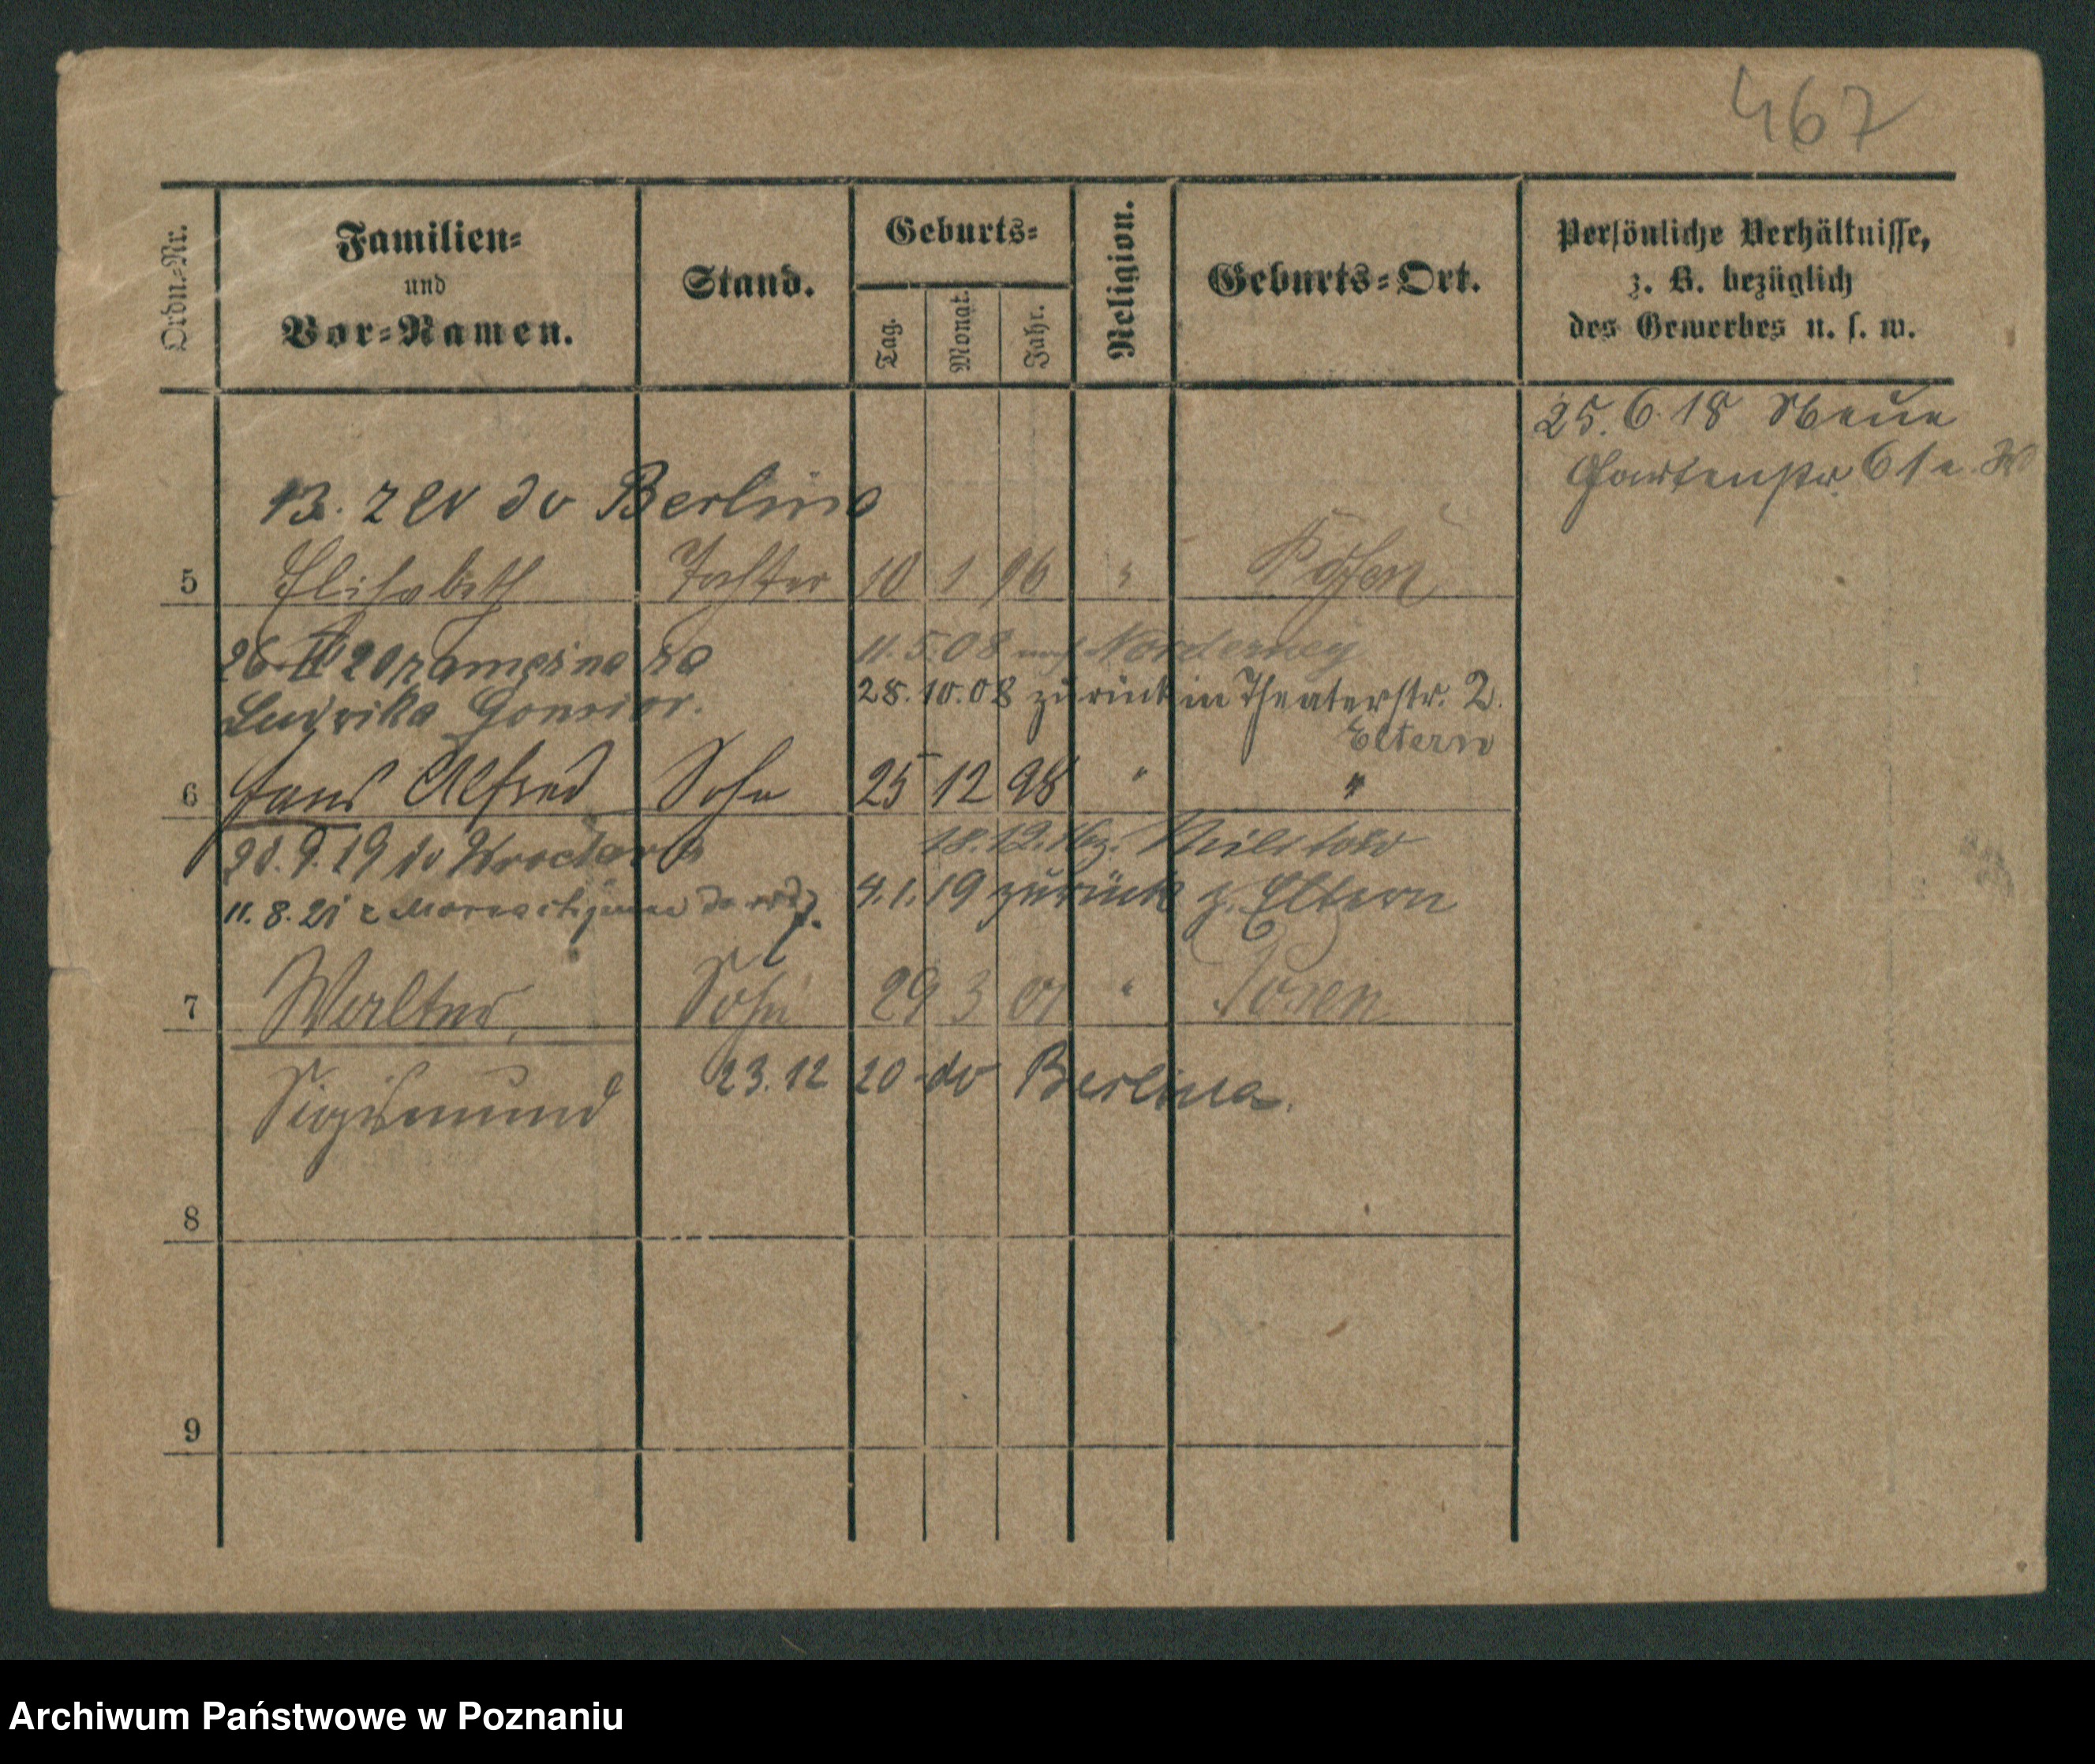 467
Ordn.-Nr.
Familien-
und
Vor-Namen.
Stand.
Geburts-
Tag.
Monat.
Jahr.
Religion.
Geburts-Ort.
Persönliche Verhältnisse,
z. B. bezüglich
des Gewerbes u. s. w.
25.6.18 Neue
Gartenstr. 61
13. do Berlina
5 Elisabeth Tochter 10 1 96 " Posen
20 zamężna za
Ludwika
11.5.08 nach Norderney
28.10.08 zurück in Theaterstr. 2.
Eltern
6 Hans Alfred Sohn 25 12 98 " "
.9.19 do Wrocławia
18.12.
11.8.21 z
4.1.19 zurück z. Eltern
7 Walter, Sohn 29 3 01 " Posen
Sigismund
23.12 20 do Berlina.
8
9
Archiwum Państwowe w Poznaniu